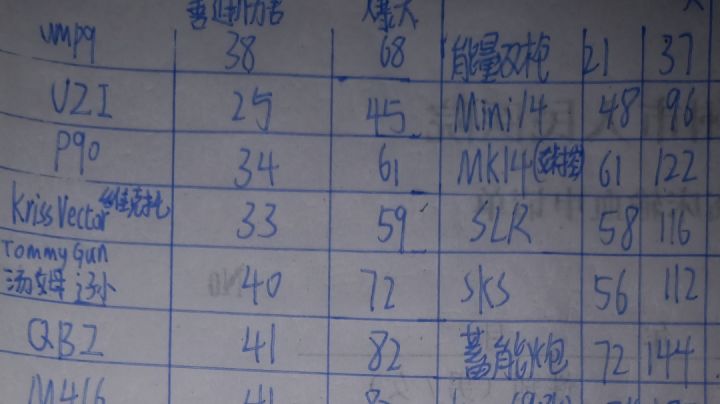 普通伤害 爆头
ump9 38 68 能量双枪 21 37
UZI 25 45 Mini14 48 96
P90 34 61 MK14 61 122
Kriss Vector 维克托 33 59 SLR 58 116
Tommy Gun
汤姆 40 72 SKS 56 112
QBZ 41 82 蓄能炮 72 144
M416 41